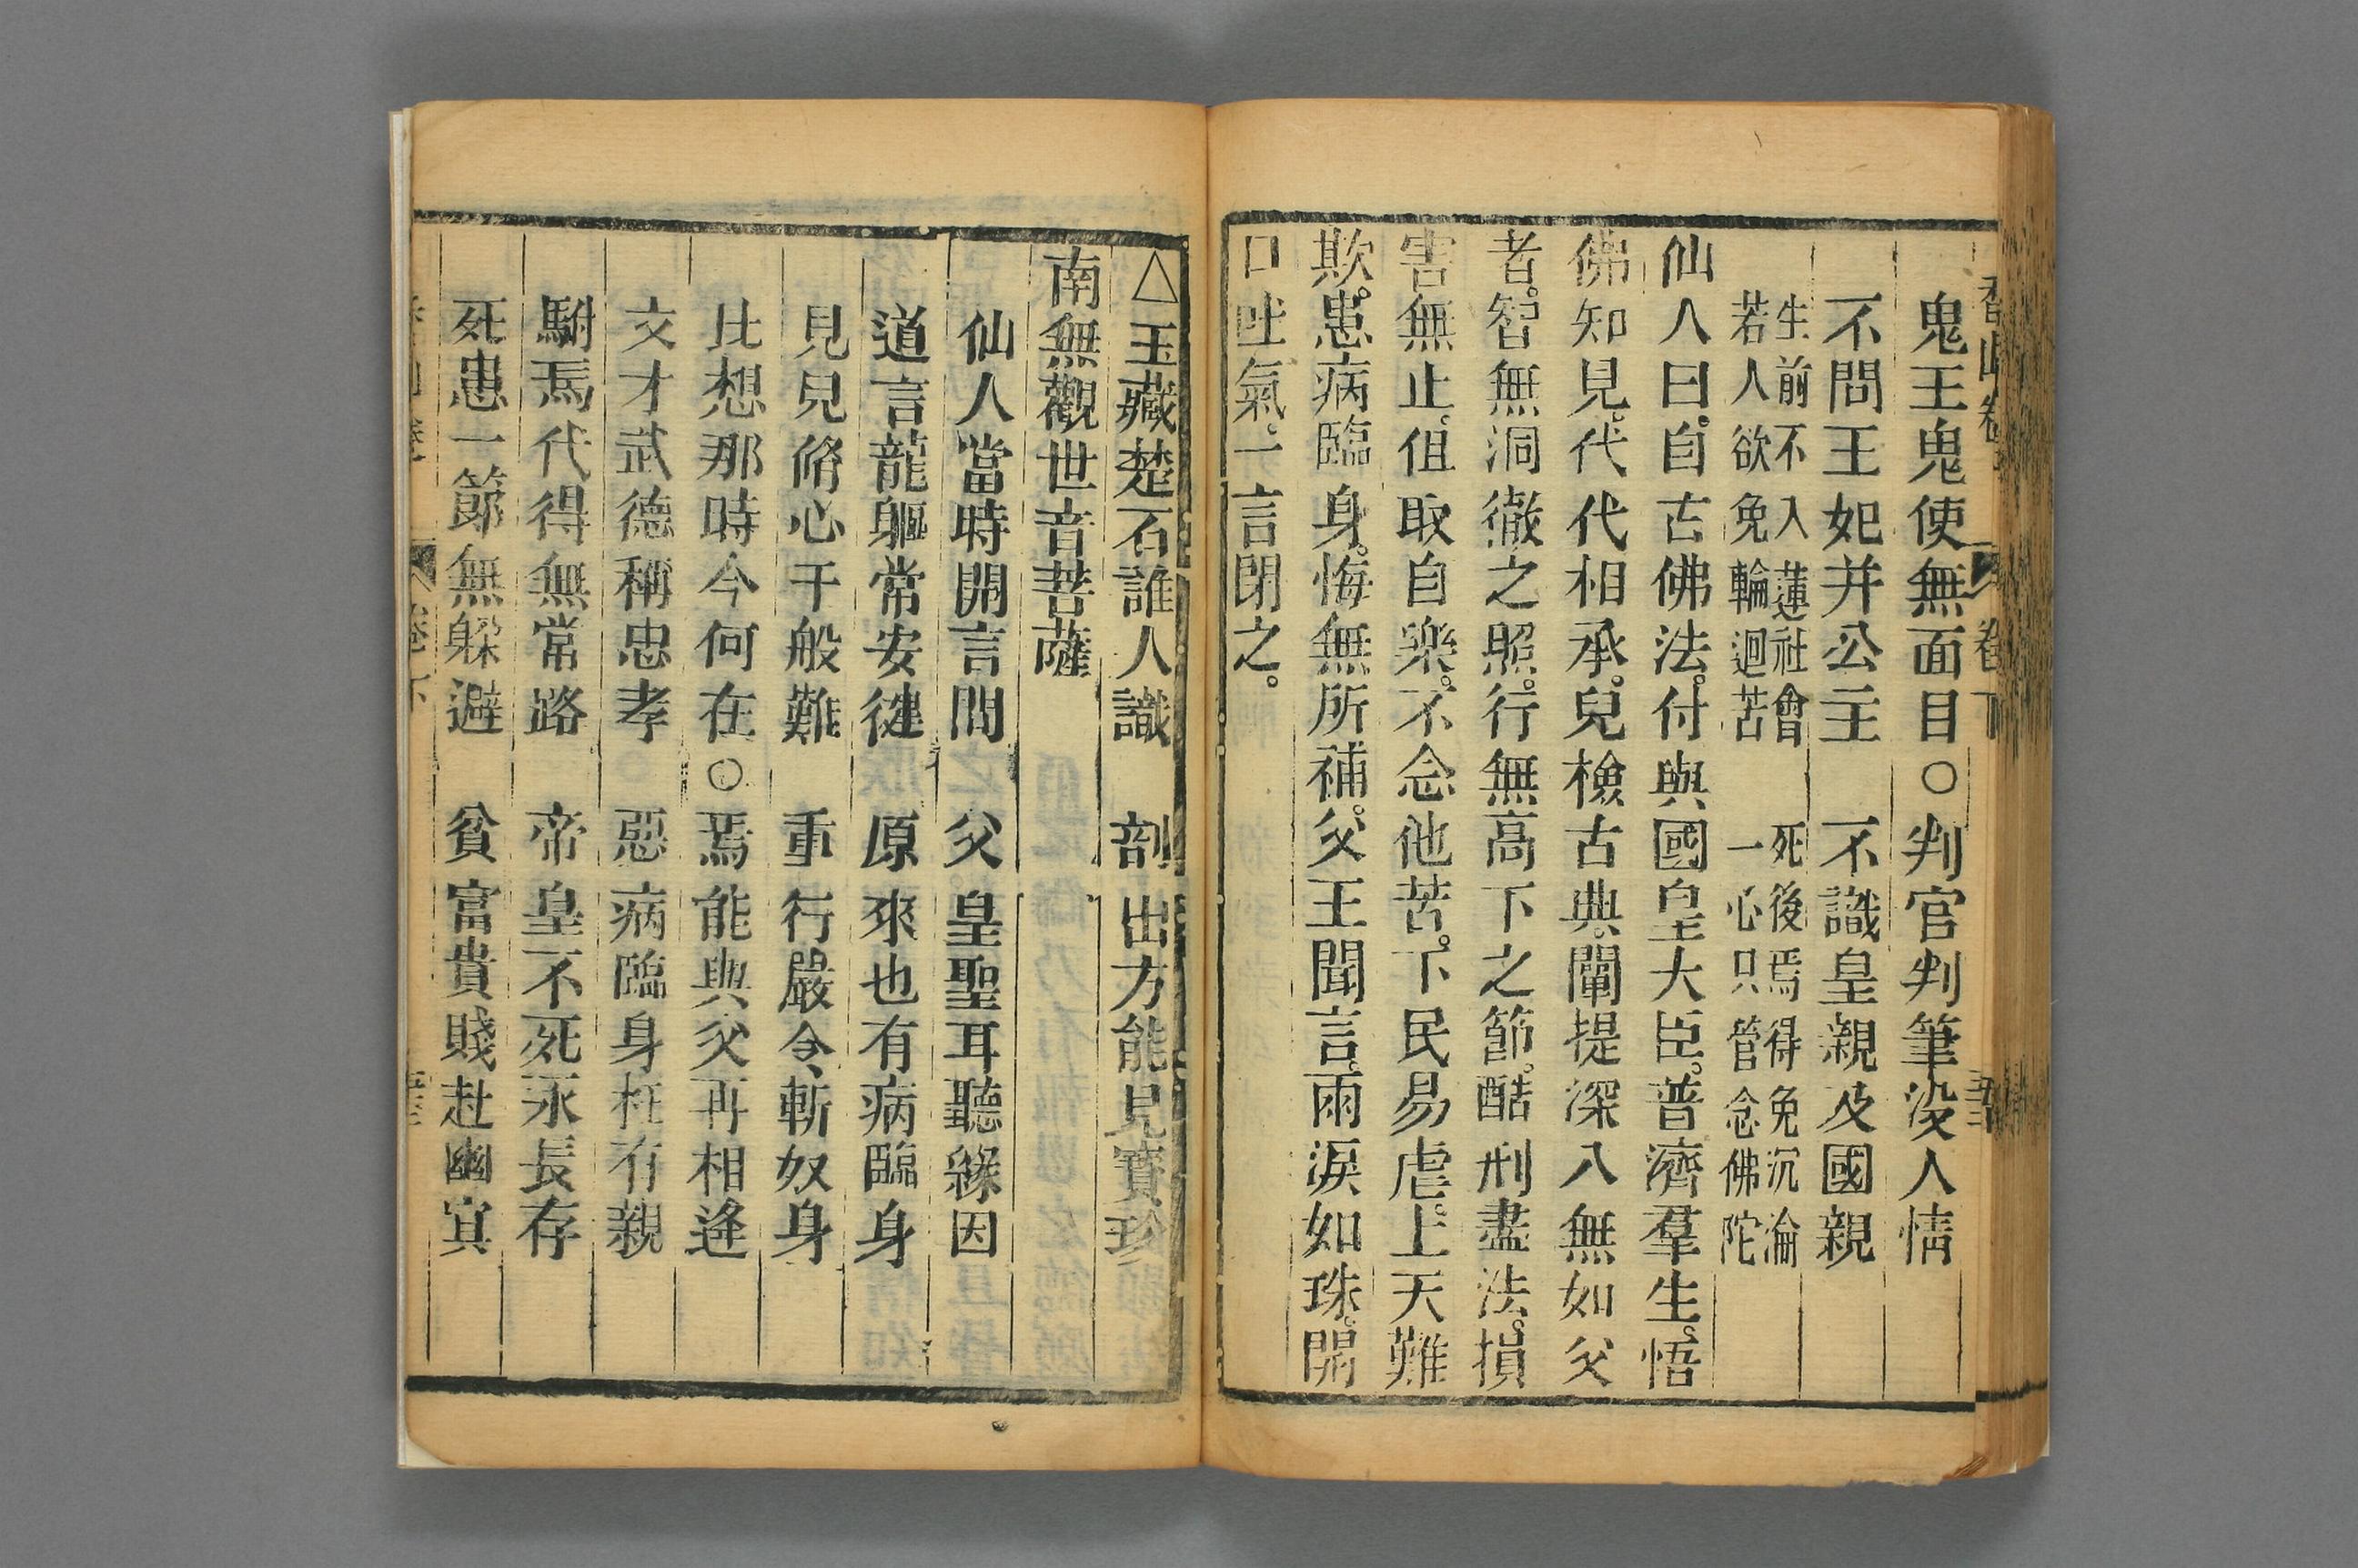 香山卷 卷下
鬼王鬼使無面目○判官判筆没人情
不問王妃并公主 不識皇親及國親
生前不入蓮社會 死後焉得免沉淪
若人欲免輪迴苦 一心只管念佛陀
仙人曰。自古佛法。付與國皇大臣。普濟羣生。悟
佛知見。代代相承。兒檢古典。闡提深八無如父
者。智無洞徹之照。行無高下之節。酷刑盡法。損
害無止。伹取自樂。不念他苦。下民易虐。上天難
欺。患病臨身。悔無所補。父王聞言。雨淚如珠。開
口吐氣。一言閉之。
△玉藏楚石誰人識 剖出方能見寶珍
南無觀世音菩薩
仙人當時開言問 父皇聖耳聽緣因
道言龍軀常安徤 原來也有病臨身
見兒脩心千般難 重行嚴令斬奴身
比想那時今何在○焉能與父再相逢
文才武德稱忠孝 惡病臨身枉有親
駙馬代得無常路 帝皇不死永長存
死患一節無躱避 貧富貴賤赴幽冥